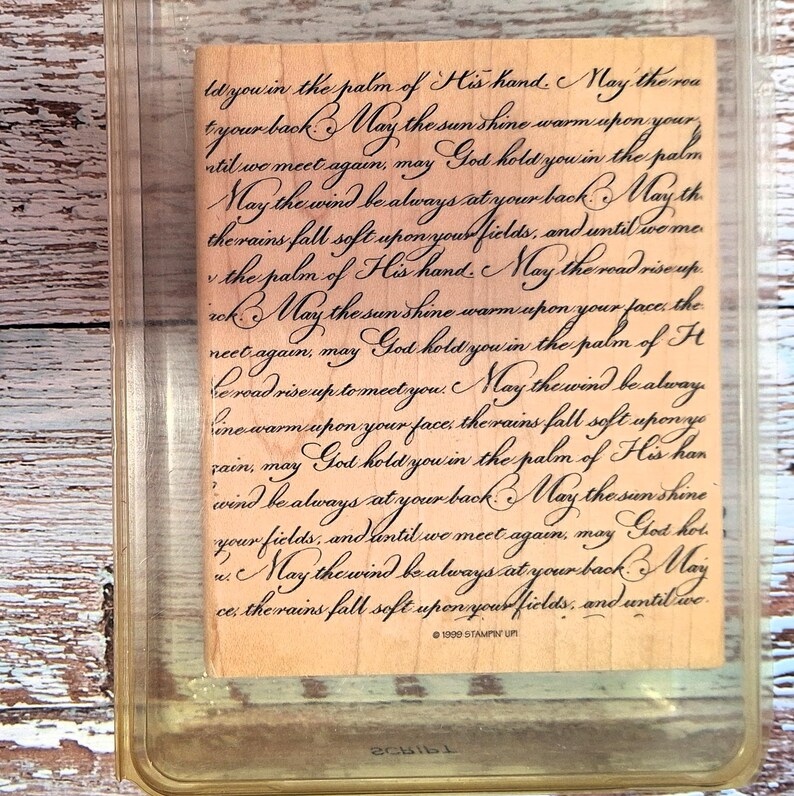 ld you in the palm of His hand. May the roa
t your back. May the sun shine warm upon your
ntil we meet again, may God hold you in the palm
May the wind be always at your back. May th
the rains fall soft upon your fields, and until we me
the palm of His hand. May the road rise up
ack. May the sun shine warm upon your face; the
meet again, may God hold you in the palm of H
he road rise up to meet you. May the wind be alway
ine warm upon your face; the rains fall soft upon yo
gain, may God hold you in the palm of His han
wind be always at your back. May the sun shine
your fields, and until we meet again, may God hol
u. May the wind be always at your back. May
ce; the rains fall soft upon your fields, and until we
© 1999 STAMPIN' UP!
SCRIPT